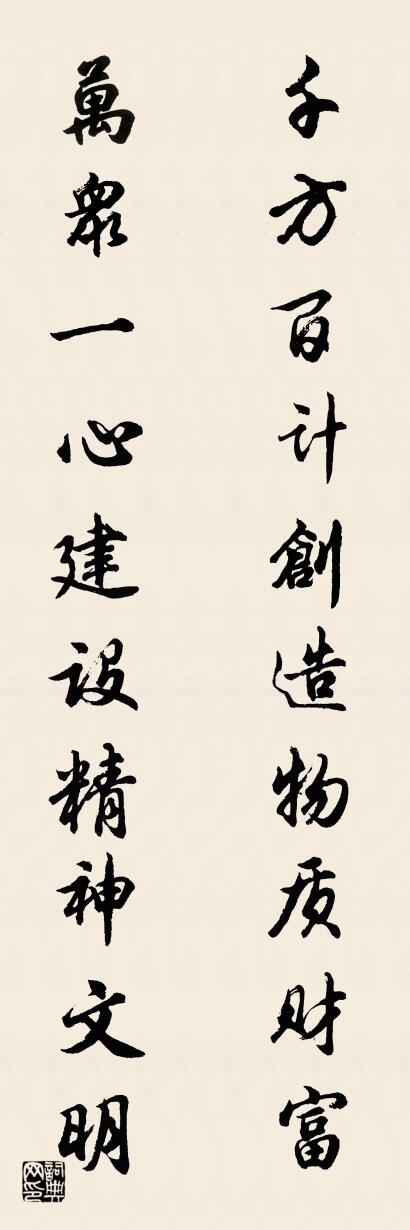 千方百计創造物质财富
萬衆一心建设精神文明
詞典网印